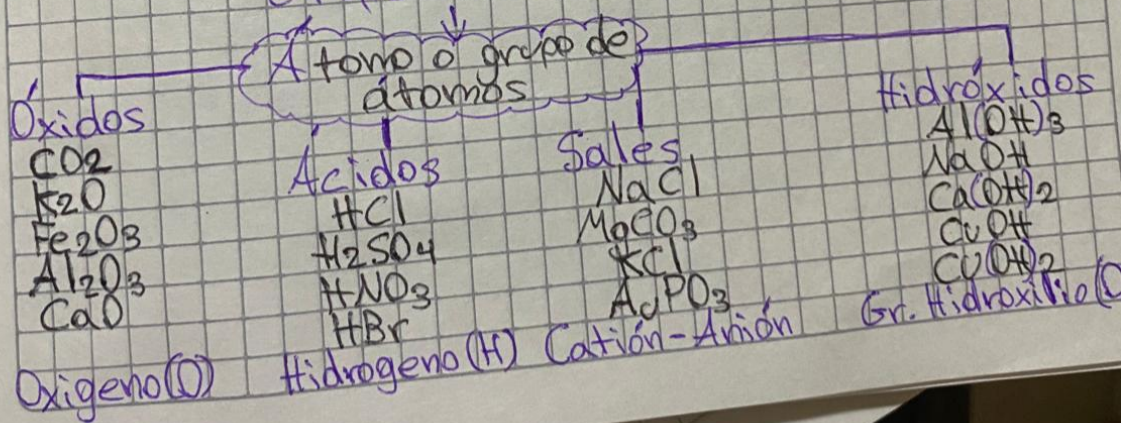 Átomo o grupo de
átomos
Óxidos
CO2
K2O
Fe2O3
Al2O3
CaO
Oxigeno(O)
Acidos
HCl
H2SO4
HNO3
HBr
Hidrogeno(H)
Sales
NaCl
MgCO3
KCl
Catión-Anión
Hidróxidos
Al(OH)3
NaOH
Ca(OH)2
CuOH
Cu(OH)2
Gr. Hidroxilio(O